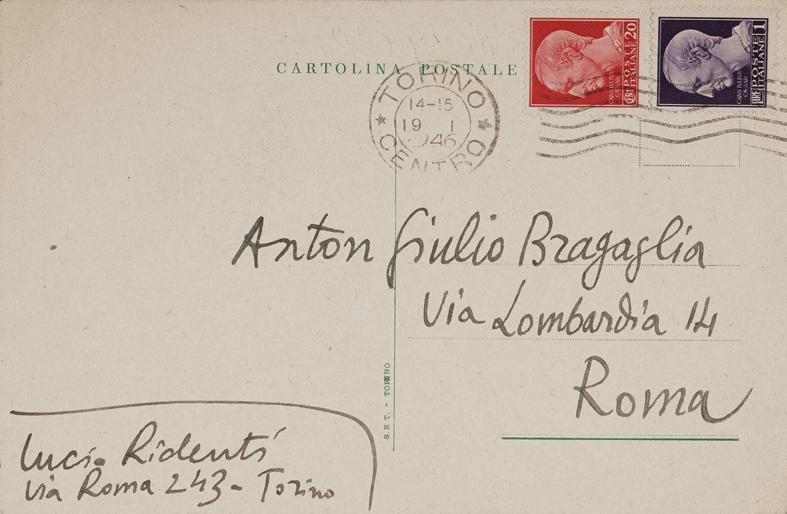 CARTOLINA POSTALE
TORINO
14-15
19 I
1946
CENTRO
20
POSTE
ITALIANE
1
POSTE
ITALIANE
Anton Giulio Bragaglia
Via Lombardia 14
Roma
S.E.T. - TORINO
Lucio Ridenti
Via Roma 243 - Torino